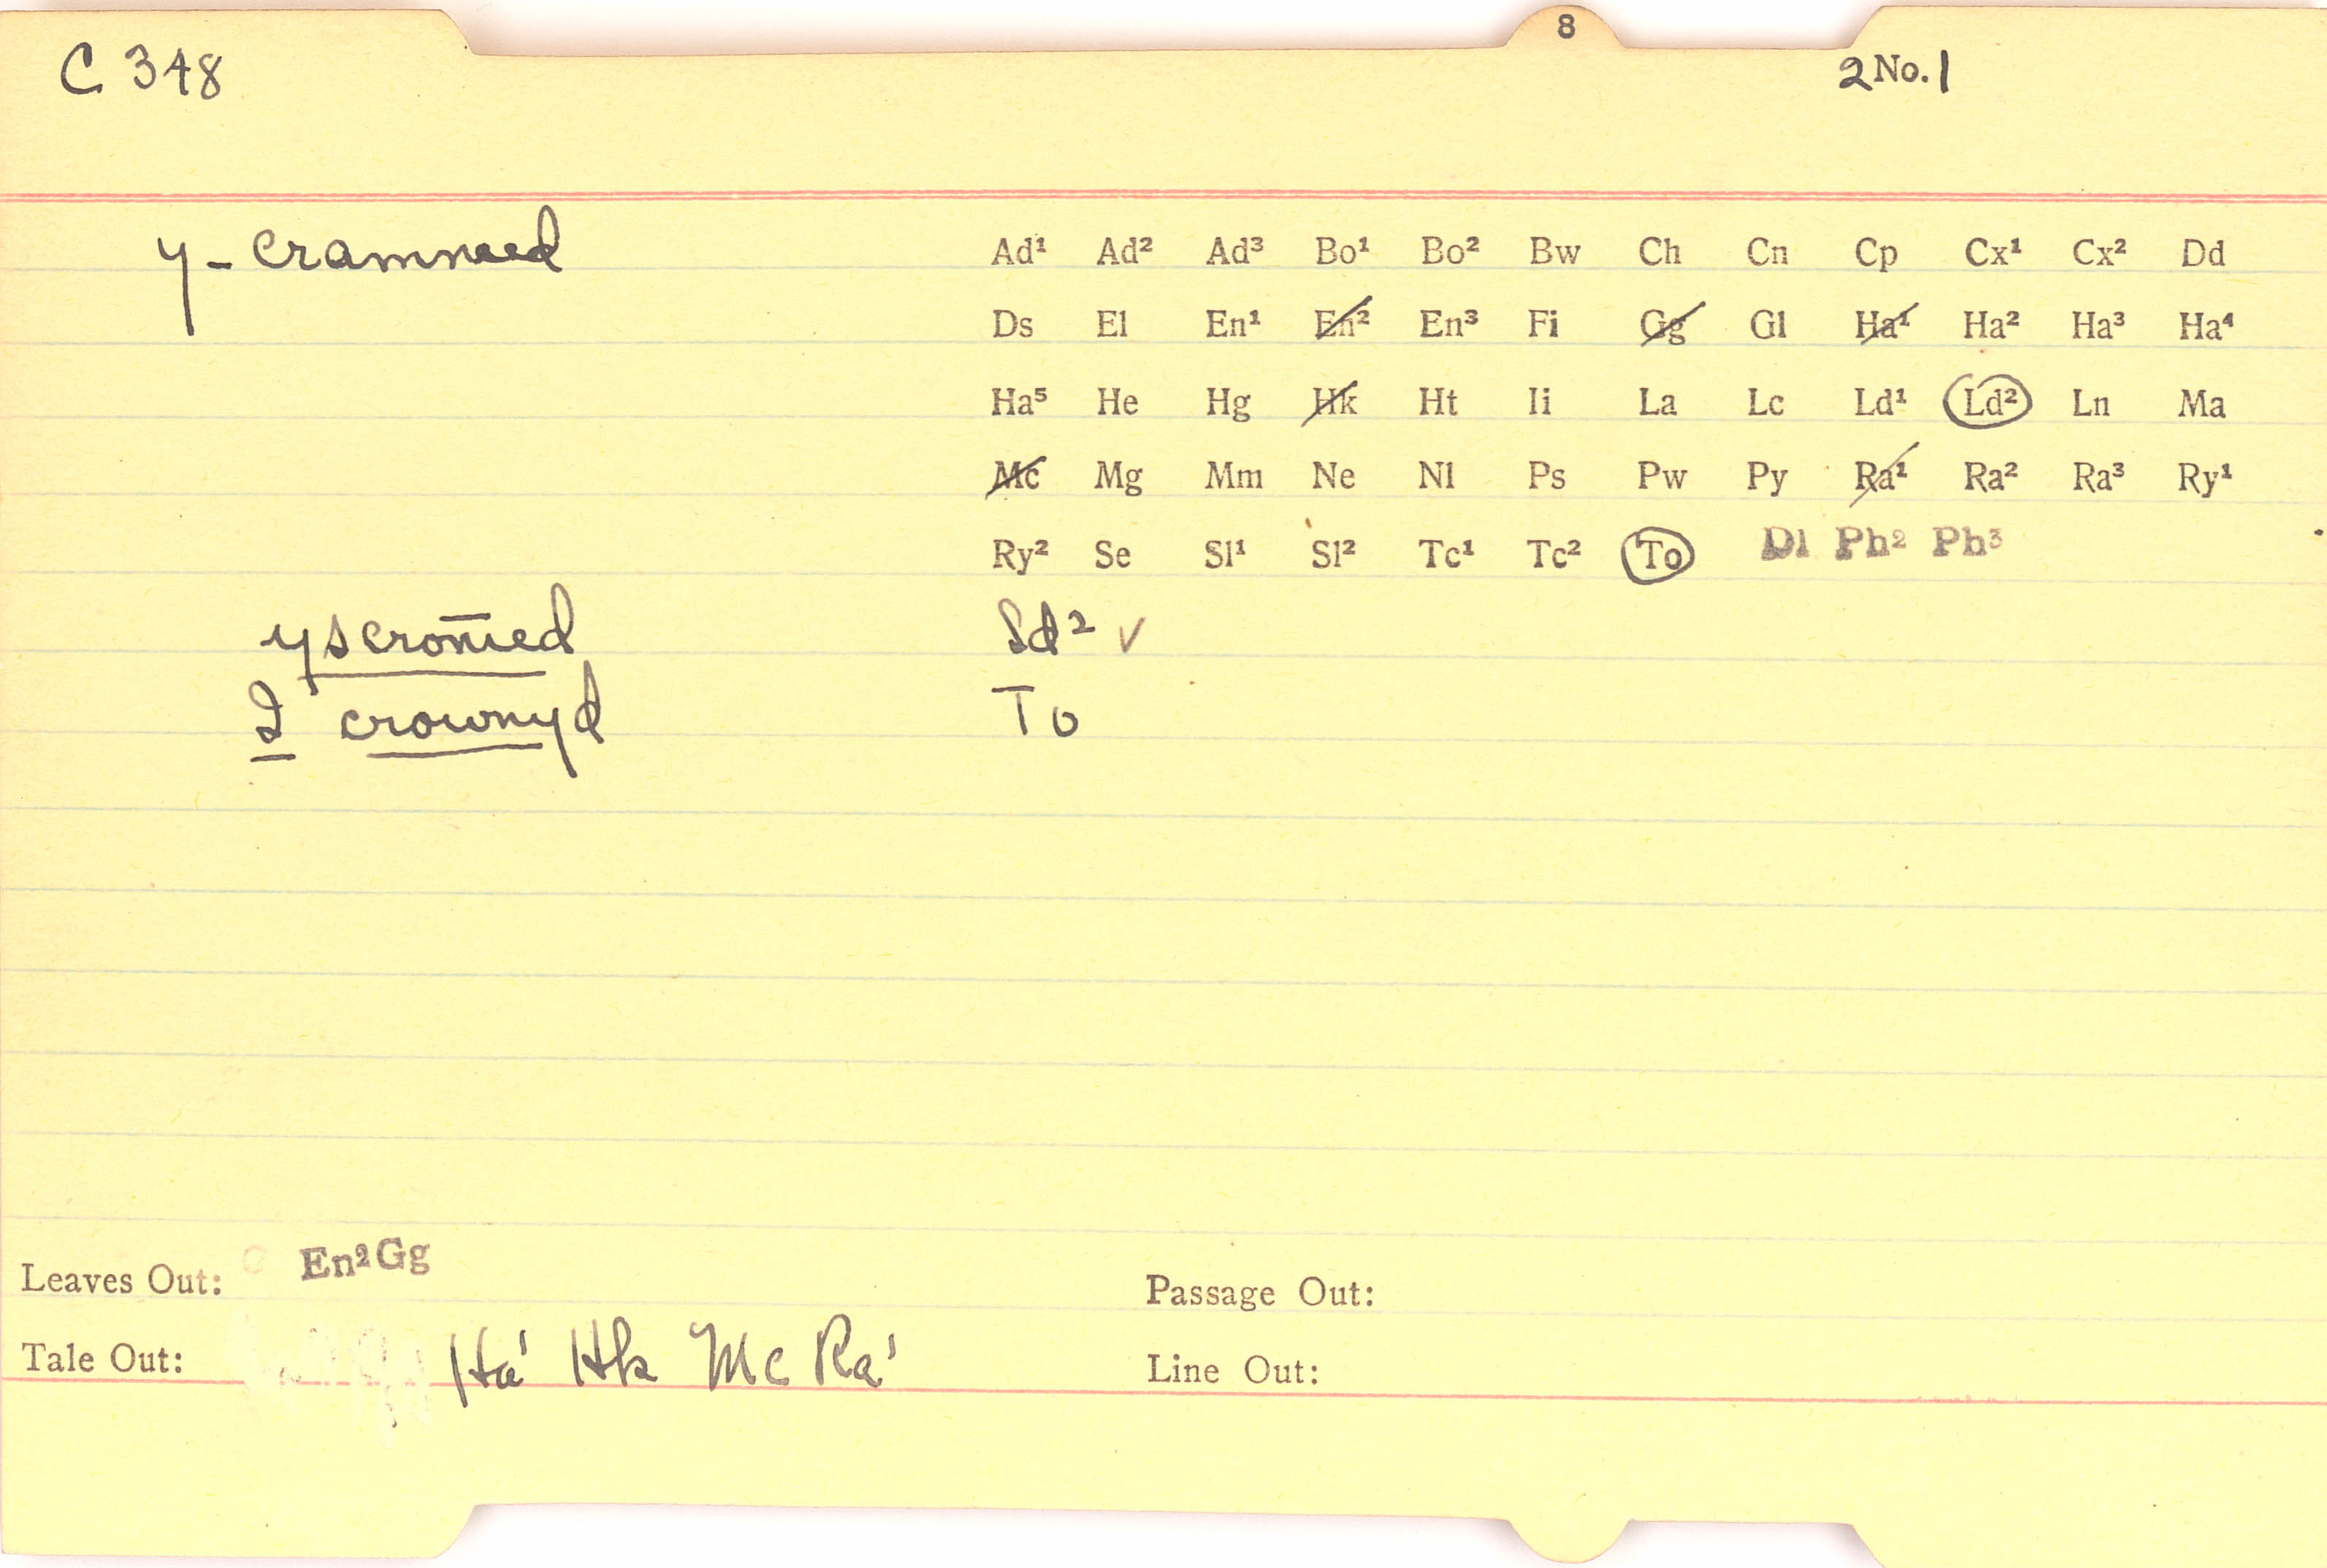 8
C 348 2 No. 1
y-crammed Ad¹ Ad² Ad³ Bo¹ Bo² Bw Ch Cn Cp Cx¹ Cx² Dd
Ds El En¹ En² En³ Fi Gg Gl Ha¹ Ha² Ha³ Ha⁴
Ha⁵ He Hg Hk Ht Ii La Lc Ld¹ Ld² Ln Ma
Mc Mg Mm Ne Nl Ps Pw Py Ra¹ Ra² Ra³ Ry¹
Ry² Se Sl¹ Sl² Tc¹ Tc² To Dl Ph² Ph³
yscrom̄ed Ld² ✓
I crownyd To
Leaves Out: En² Gg Passage Out:
Tale Out: Ha¹ Hk Mc Ra¹ Line Out: